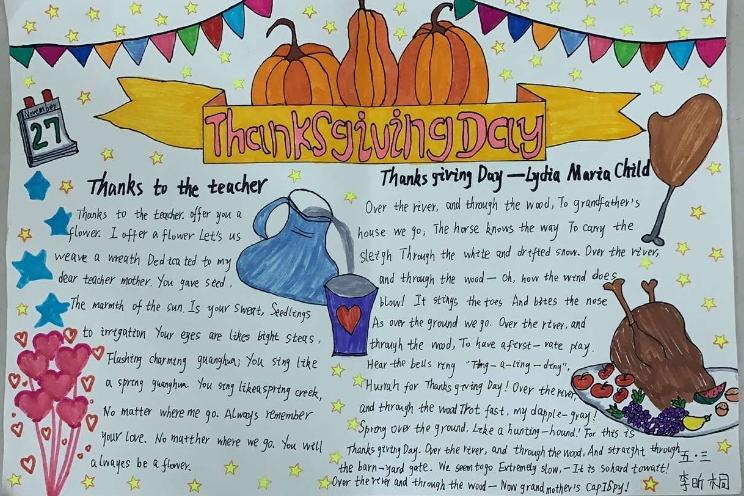 November
27
Thanksgiving Day
Thanks to the teacher
Thanks to the teacher. offer you a
flower. I offer a flower Let's us
weave a wreath Dedicated to my
dear teacher mother. You gave seed.
The warmth of the sun. Is your sweat, Seedlings
to irrigation Your eyes are likes bight steas,
Flashing charming guanghua; You sing like
a spring guanghua You sing likeaspring creek,
No matter where me go. Always remember
your love. No matther where we go. You will
always be a flover.
Thanks giving Day — Lydia Maria Child
Over the river, and through the wood, To grandfather's
house we go; The horse knows the way To carry the
sleigh Through the white and drifted snow. Over the river,
and through the wood — Oh, how the wind does
blow! It stings the toes And bites the nose
As over the ground we go. Over the river, and
through the wood, To have a first-rate play.
Hear the bells ring "Ting-a-ling-ding",
Hurrah for Thanksgiving Day! Over the river,
and through the wood Trot fast, my dapple-gray!
Spring over the ground, Like a hunting-hound! For this is
Thanksgiving Day. Over the river, and through the wood, And straight through
the barn-yard gate. We seem to go Extremely slow,- It is so hard to wait!
Over the river and through the wood — Now grandmother's cap I spy!
五·三
李昕桐